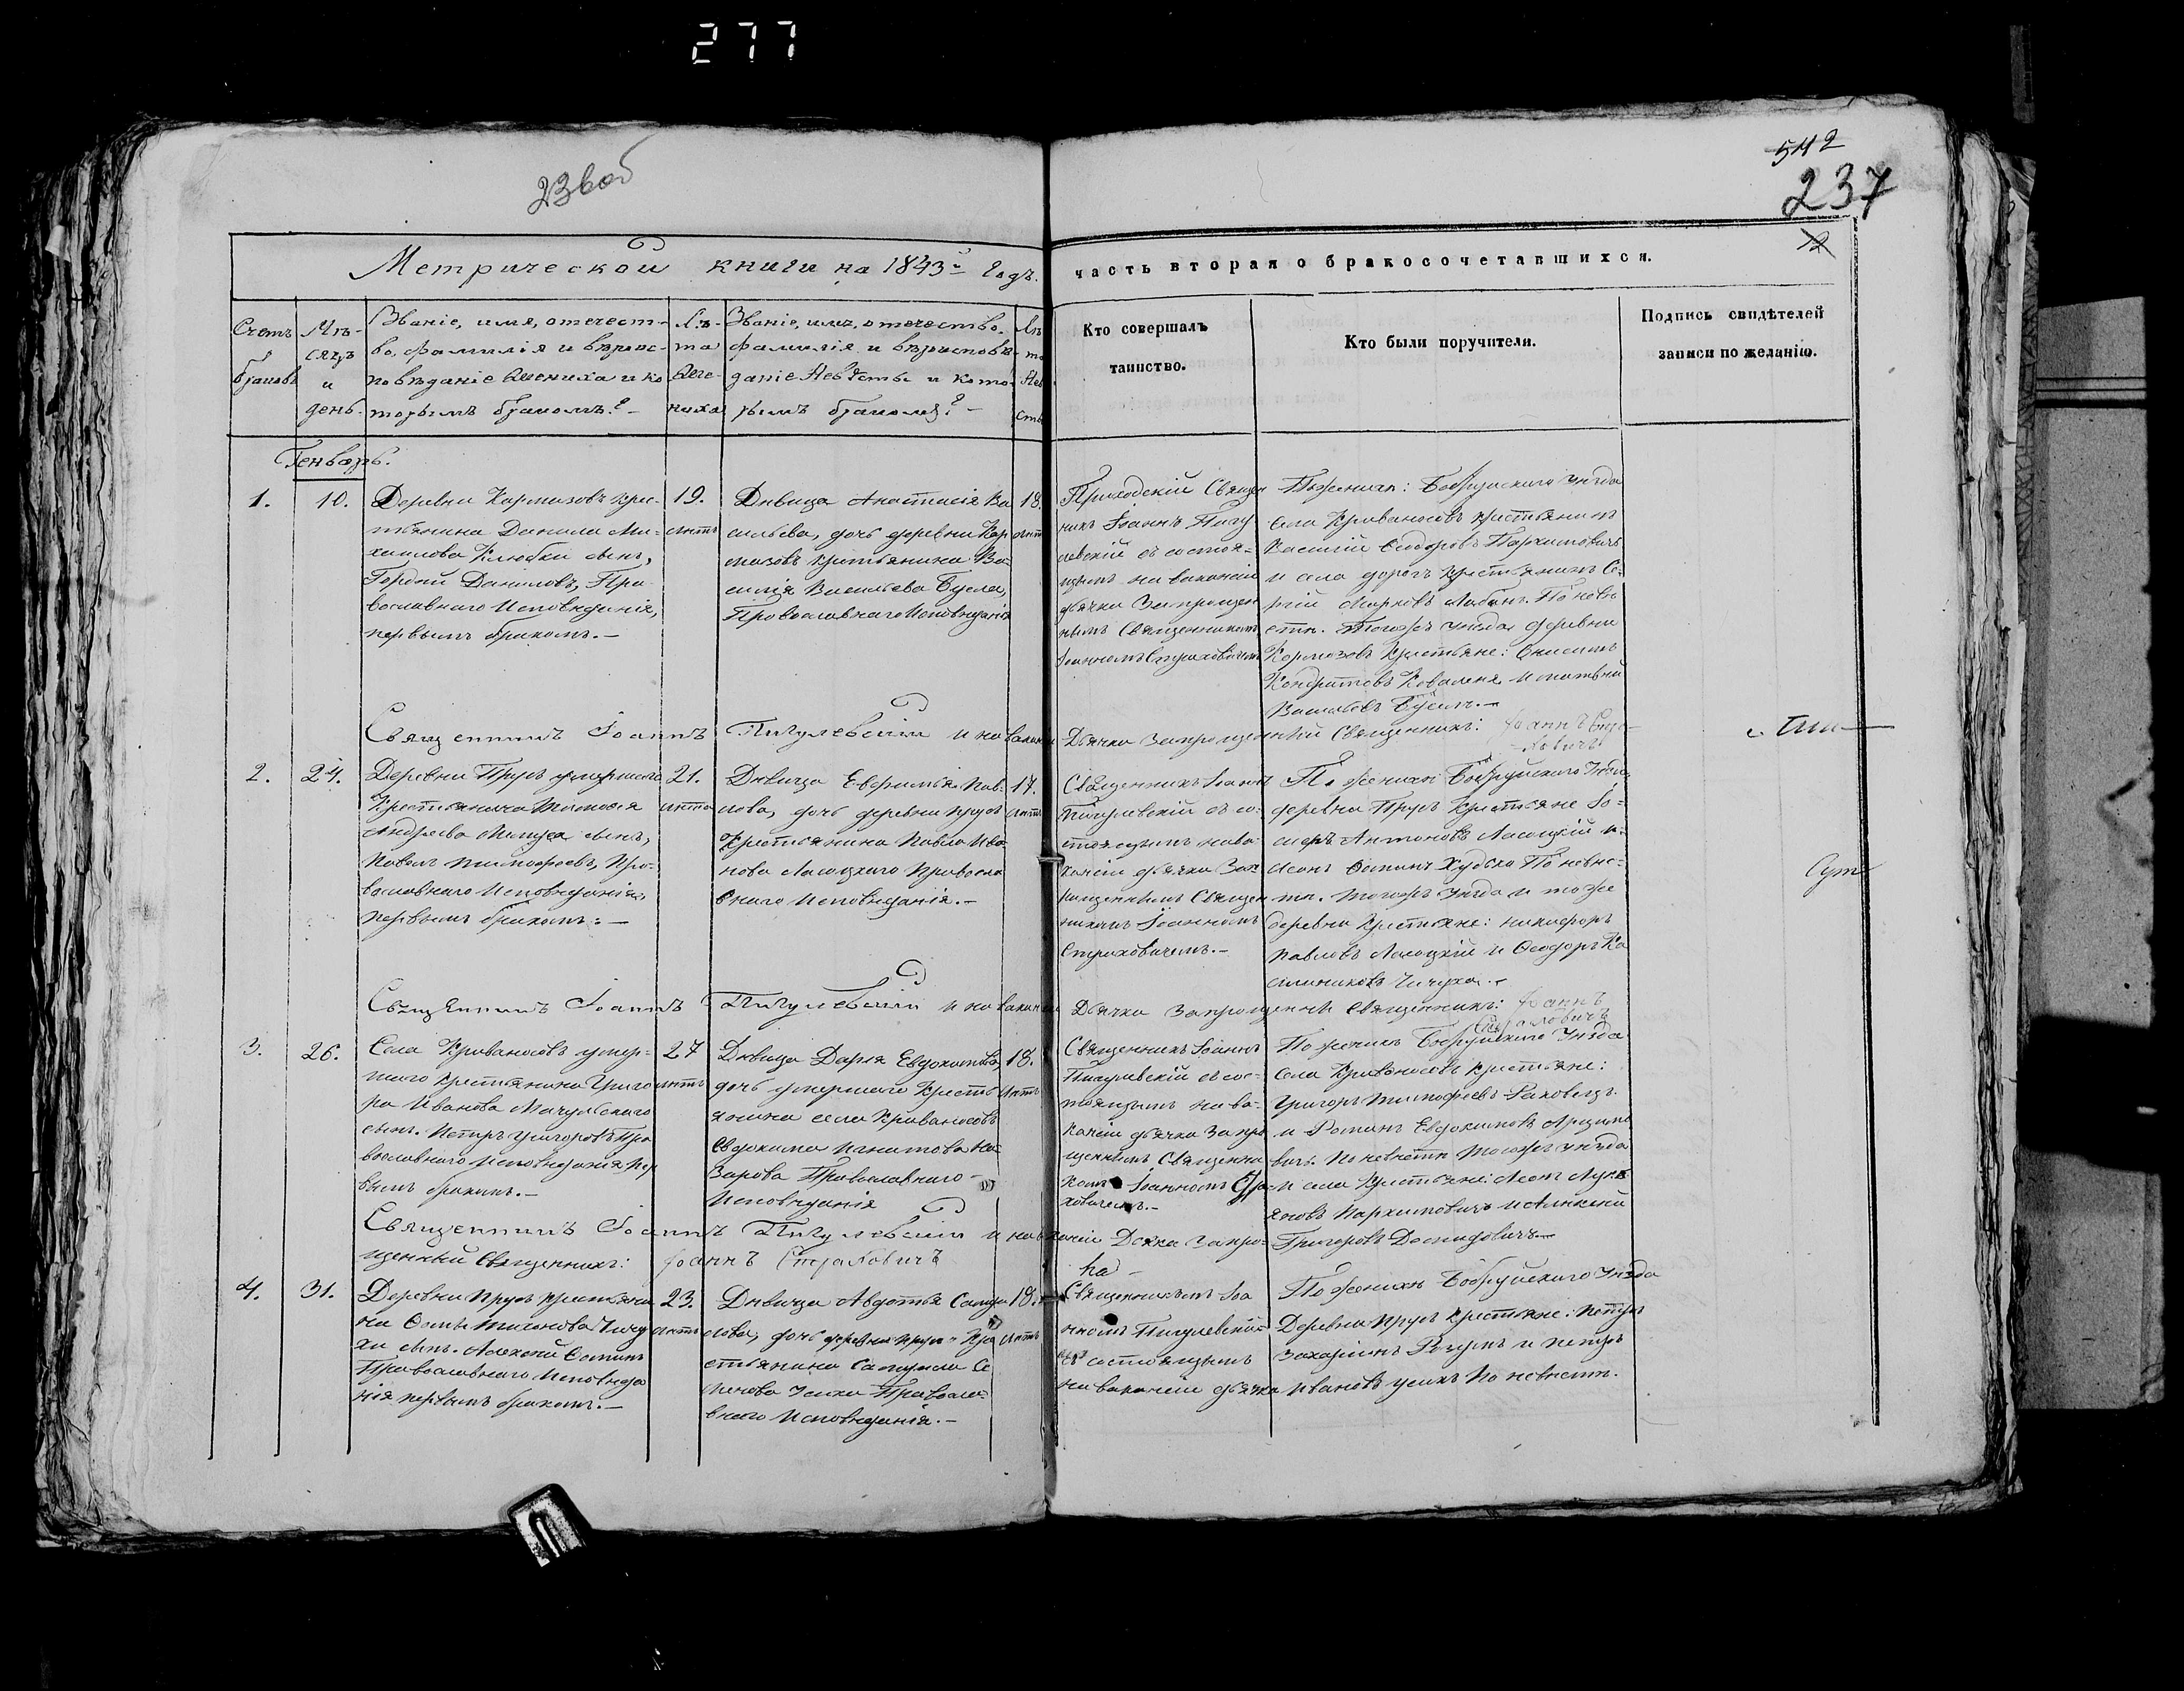 277
23 Боб
542
237
12
Метрической книги на 1843й Годъ.
часть вторая о бракосочетавшихся.
Счетъ браковъ
Мѣ-
сяцъ
и
день.
Званіе, имя, отечест-
во, фамилія и вѣроис-
повѣданіе Жениха и ко
торымъ бракомъ? –
Лѣ-
та
Же-
ниха
Званіе, имя, отечество,
фамилія и вѣроисповѣ-
даніе Невѣсты и кото-
рымъ бракомъ? –
Лѣ
та
Нев
ѣсты
Кто совершалъ
таинство.
Кто были поручители.
Подпись свидѣтелей
записи по желанію.
Генварь.
1.
10.
Деревни Кармазовъ крес-
тьянина Данила Ми-
хаилова Клюбки сынъ,
Гордей Даниловъ, Пра-
вославнаго Исповѣданія,
первымъ бракомъ. –
19.
лѣтъ
Дѣвица Анастасія Ва
сильева, дочь деревни Кар
мазовъ крестьянина Ва-
силія Васильева Бусла,
Православнаго Исповѣданія
18.
лѣтъ
Приходскій Священ
никъ Іоаннъ Пигу
левскій съ состоя-
щимъ на вакансіи
дьячка Запрещен
нымъ Священникомъ
Іоанномъ Страховичемъ
По женихѣ: Бобруйскаго Уѣзда
села Криваносовъ крестьянинъ
Василій Ѳеодоровъ Пархимовичъ
и села дорогъ крестьянинъ Се-
ргій Марковъ Лабанъ. По невѣ
стѣ. Тогожъ уѣзда деревни
Кормозовъ Крестьяне:
Кондратовъ Коваленя и матвѣй
Васильевъ Бусилъ. –
Священникъ Іоаннъ Пигулевскій и на ваканси Дьячка запрещенный Священникъ: Іоаннъ Стра-
ховичъ
2.
24.
Деревни Прусъ умершаго
Крестьянина Тимоѳея
Андреева сынъ,
Павелъ Тимофеевъ, Пра-
вославнаго Исповѣданія,
первымъ бракомъ: –
21.
лѣта
Дѣвица Евфимія Пав-
лова, дочь деревни прусъ
Крестьянина Павла Ива-
нова Ласицкаго Правосла
внаго Исповѣданія. –
17.
лѣтъ
Священникъ Іоаннъ
Пигулевскій съ со-
стоящимъ на ва-
кансіи дьячка Зап
рещеннымъ Священ
никомъ Іоанномъ
Страховичемъ. –
По женихѣ Бобруйскаго Уѣзда
деревни Прусъ Крестьяне Іо-
сифъ Антоновъ Ласицкій и
Ѳоминъ Худско По невѣ-
стѣ. тогожъ уѣзда и тоже
деревни Крестьяне: никифоръ
Павловъ Ласицкій и Ѳеодоръ Ка
Чичуха. –
Священникъ Іоаннъ Пигулевскій и на вакансіи Дьячка запрещенный священникъ: Іоаннъ
Страховичъ
3.
26.
Села Криваносовъ умер-
шаго Крестьянина Григо
ра Иванова Мачульскаго
сынъ. Петръ Григоровъ Пра
вославнаго Исповѣданія пер
вымъ бракомъ. –
27
лѣтъ
Дѣвица Дарія Евдокимова,
дочь умершаго Кресть
янина села Криваносовъ
Евдокима Игнатова На
зарова Православнаго –
Исповѣданія
18.
лѣтъ
Священникъ Іоаннъ
Пигулевскій съ сос-
тоящимъ на ва-
кансіи дьячка Запре
щеннымъ Священни
комъ Іоанномъ Стра-
ховичемъ. –
По женихѣ Бобруйскаго Уѣзда
Села Криваносовъ крестьяне:
Григоръ Тимофеевъ Раковецъ
и Романъ Евдокимовъ
вичъ. По невѣстѣ Тогожъ уѣзда
и села Крестьяне: Леонъ Лукь
яновъ Пархимовичъ и Алексей
Григоровъ Демидовичъ. –
Священникъ Іоаннъ Пигулевскій и на вакансіи Дьячка Запре-
щенный Священникъ: Іоаннъ Страховичъ
на
4.
31.
Деревни Прусъ крестьяни
на Ѳомы Тихонова Чичу
хи сынъ. Алексей Ѳоминъ
Православнаго Исповѣда
нія первымъ бракомъ. –
23.
лѣтъ
Дѣвица Авдотья Самуи
лова, дочь деревни прусъ Кре
стьянина Самуила Се
менова Усика Правосла
внаго Исповѣданія. –
18.
лѣтъ
Священникомъ Іоа
нномъ Пигулевскимъ
съ состоящимъ
на вакансіи дьячка
По женихѣ Бобруйскаго Уѣзда
Деревни Прусъ Крестьяне: Петръ
Захаріинъ Розумъ и петръ
Ивановъ усикъ По невѣстѣ.